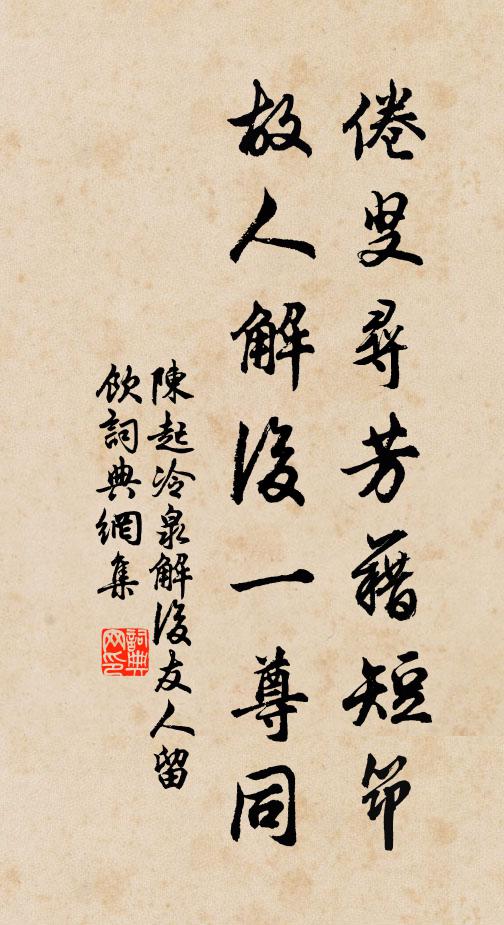 倦叟尋芳藉短筇
故人解後一尊同
陳起冷泉解後友人留
飲詞典網集
詞典
网印